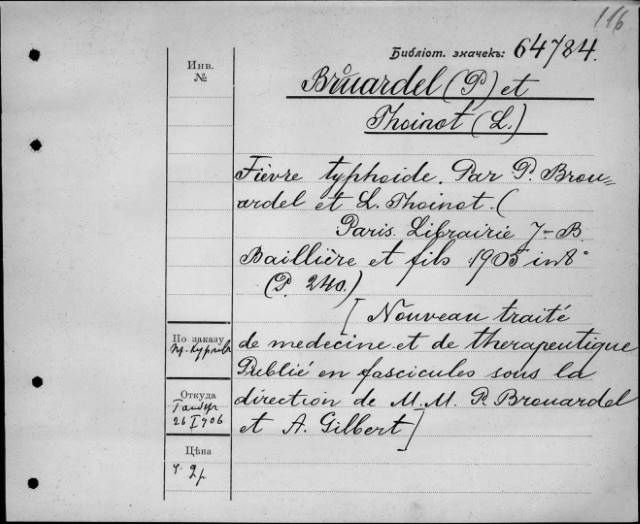 116
Библіот. значекъ: 64784.
Инв.
№
Brůardel (P) et
Thoinot (L.)
Fièvre typhoide. Par P. Brou=
ardel et L. Thoinot. (
Paris. Librairie J-B.
Baillière et fils 1905 in 8°
(P. 240.)
[ Nouveau traité
de medecine et de therapeutique
Publié en fascicules sous la
direction de M.M. P. Brouardel
et A. Gilbert ]
По заказу
Откуда
26 I 906
Цѣна
2 р